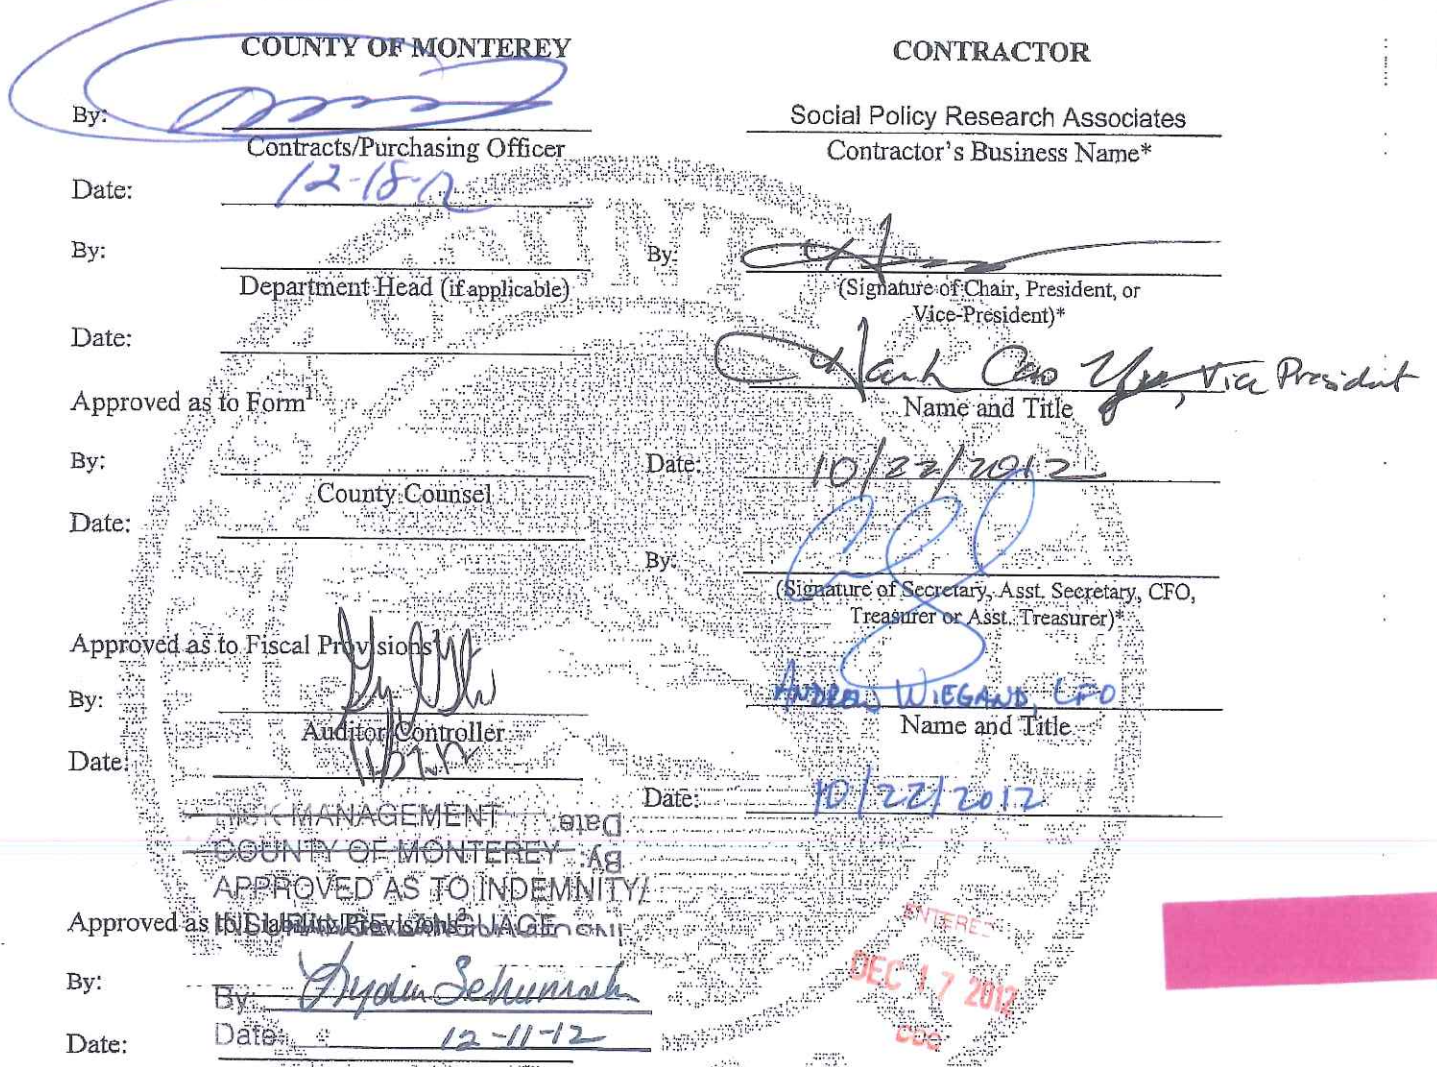 COUNTY OF MONTEREY
By:
Contracts/Purchasing Officer
Date: 12-18-12
By:
Department Head (if applicable)
Date:
Approved as to Form1
By:
County Counsel
Date:
Approved as to Fiscal Provisions
By:
Auditor/Controller
Date:
RISK MANAGEMENT
COUNTY OF MONTEREY
APPROVED AS TO INDEMNITY/
INSURANCE LANGUAGE
Approved as to Liability Provisions
By:
By:
Date:
Date: 12-11-12
CONTRACTOR
Social Policy Research Associates
Contractor's Business Name*
By:
(Signature of Chair, President, or
Vice-President)*
Hanh Cao Yu, Vice President
Name and Title
Date: 10/22/2012
By:
(Signature of Secretary, Asst. Secretary, CFO,
Treasurer or Asst. Treasurer)*
ANDREW WIEGAND, CFO
Name and Title
Date: 10/22/2012
Date
By:
ENTERED
DEC 17 2012